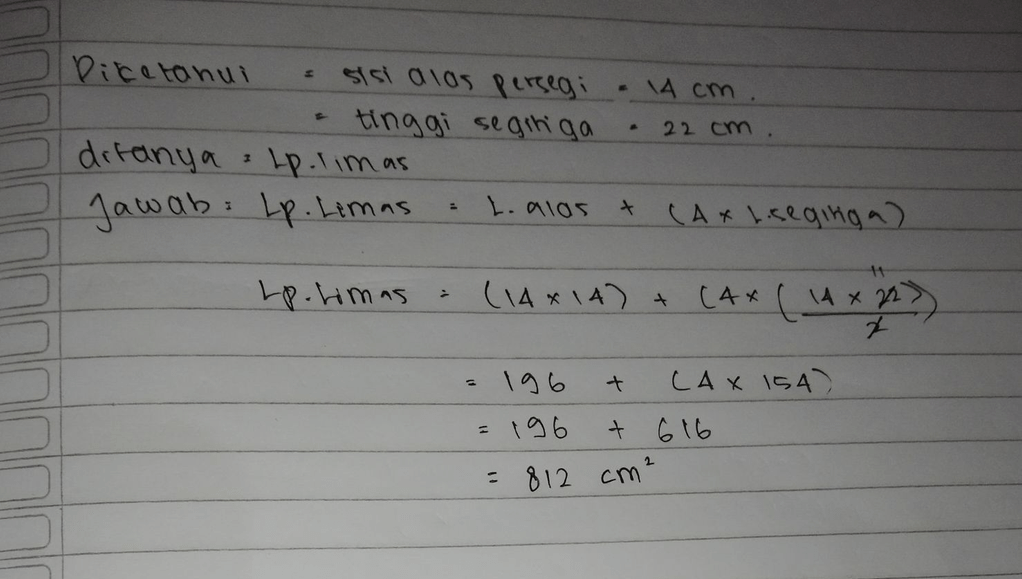 Diketahui = sisi alas persegi = 14 cm.
= tinggi segitiga = 22 cm.
ditanya = Lp. limas
Jawab = Lp. Limas = L. alas + (4 x L.segitiga)
Lp. Limas = (14 x 14) + (4 x (14 x 22)) 11
2
= 196 + (4 x 154)
= 196 + 616
= 812 cm²